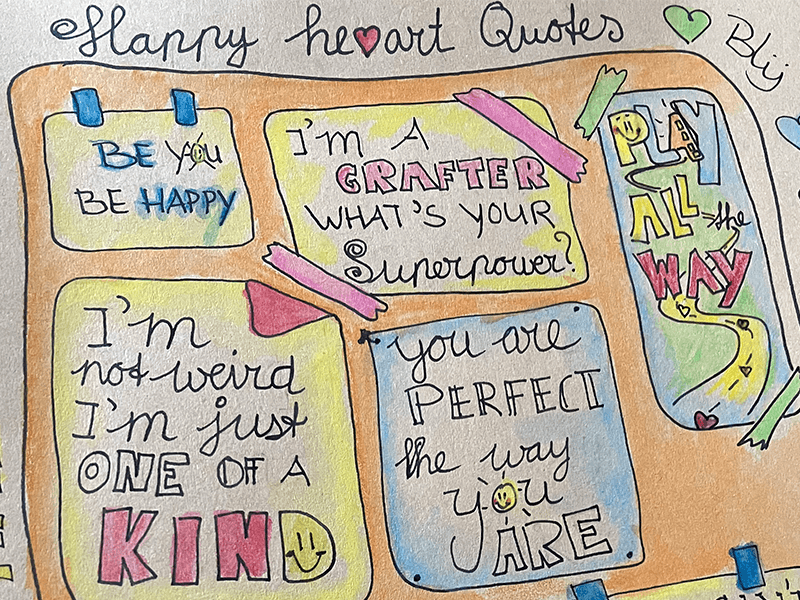 Happy heart Quotes
Blij
BE YOU
BE HAPPY
I'M A
GRAFTER
WHAT'S YOUR
Superpower?
PLAY
ALL the
WAY
I'm
not weird
I'm just
ONE OF A
KIND
you are
PERFECT
the way
you
ARE